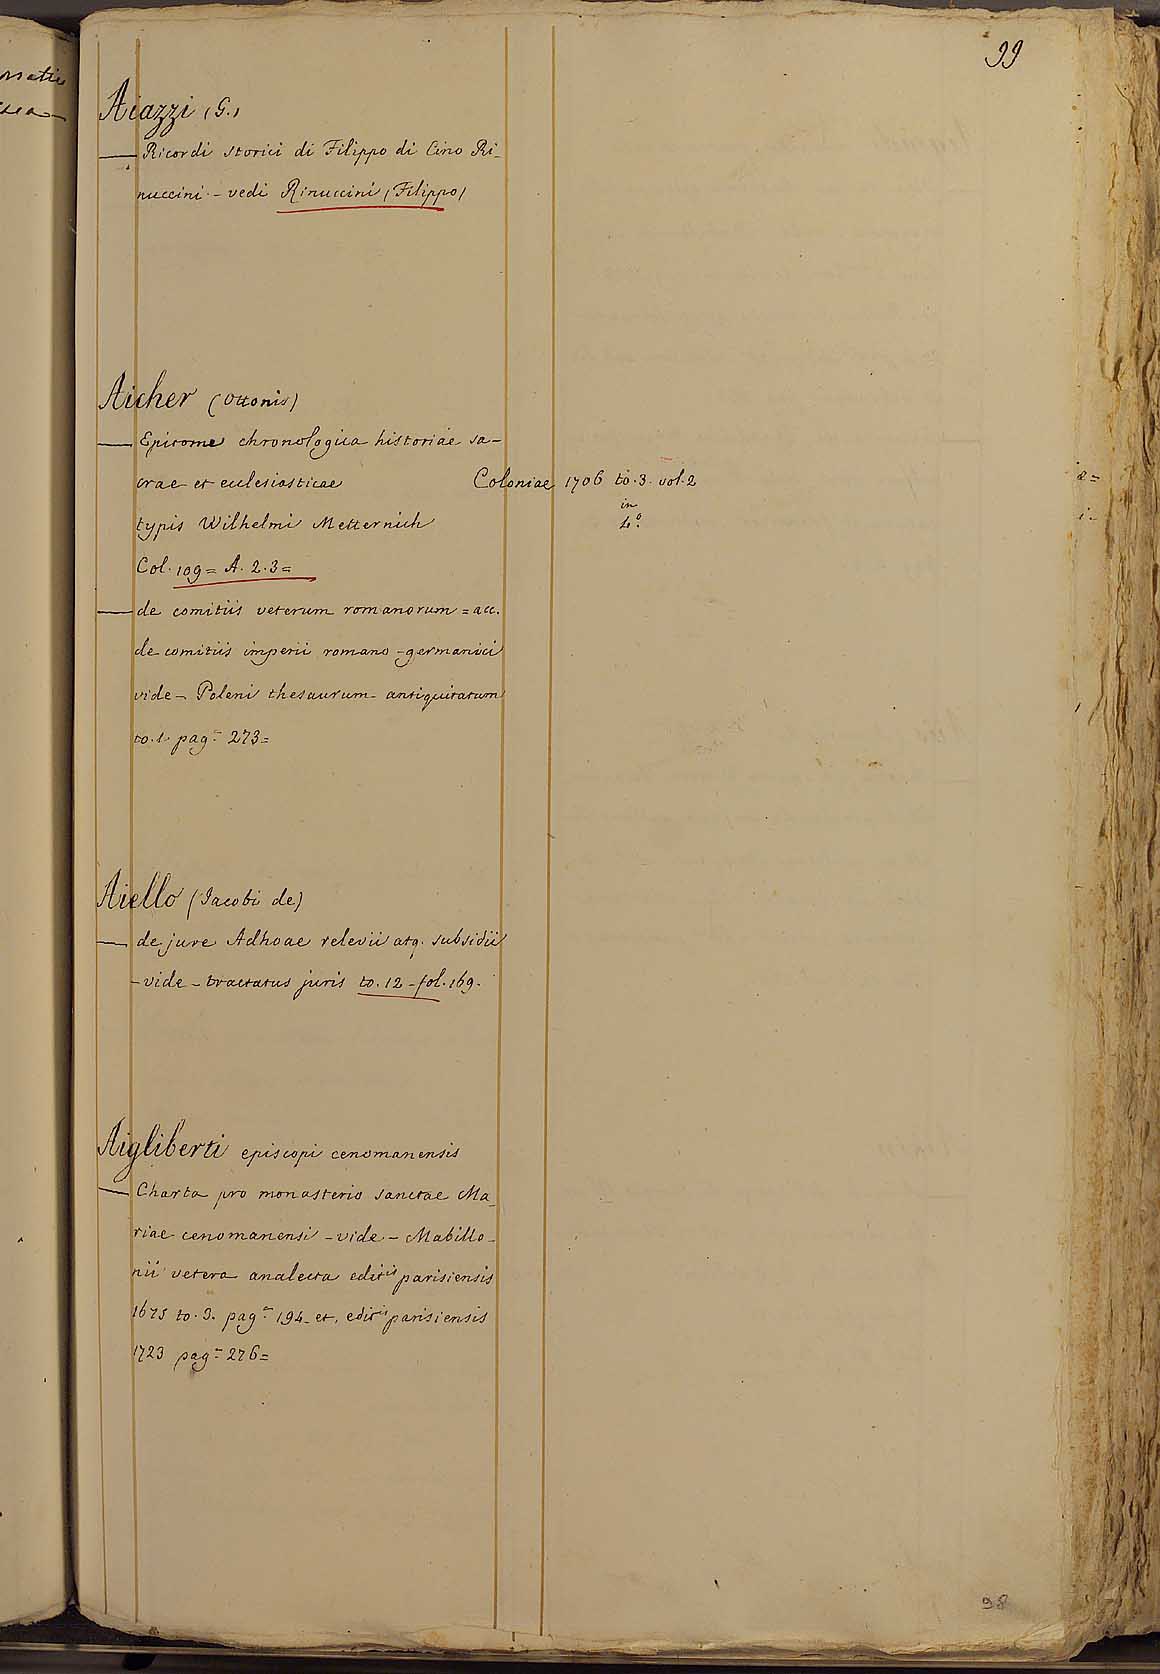 99
Aiazzi (G.)
— Ricordi storici di Filippo di Cino Ri-
nuccini - vedi Rinuccini (Filippo)
Aicher (Ottonis)
— Epitome chronologica historiae sa-
crae et ecclesiasticae Coloniae 1706 to. 3. vol. 2
in
4.º
typis Wilhelmi Metternich
Col. 109 = A. 2. 3 =
— de comitiis veterum romanorum = acc.
de comitiis imperii romano-germanici
vide - Poleni thesaurum antiquitatum
to. 1. pag.ª 273 =
Aiello (Jacobi de)
— de jure Adhoae relevii atq. subsidii
- vide - tractatus juris to. 12 - fol. 169.
Aigliberti episcopi cenomanensis
— Charta pro monasterio sanctae Ma-
riae cenomanensi - vide - Mabillo-
nii vetera analecta edit.is parisiensis
1675 to. 3. pag.ª 194 et, edit.is parisiensis
1723 pag.ª 276 =
98